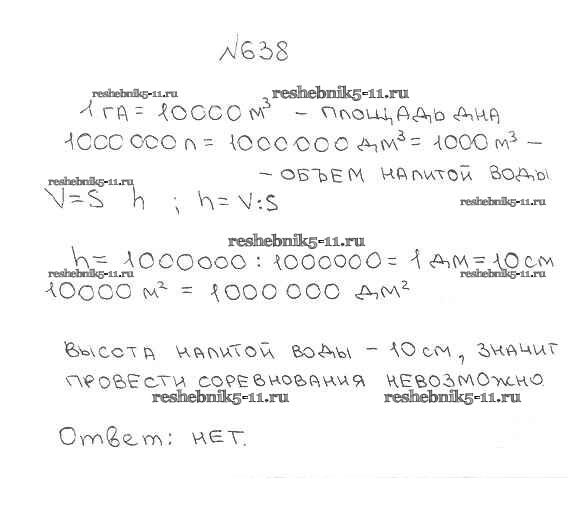 N638
reshebnik5-11.ru reshebnik5-11.ru
1 га = 10000 м³ - площадь дна
1000 000 л = 1000 000 дм³ = 1000 м³ -
- объем налитой воды
reshebnik5-11.ru
V=S h ; h = V:S
reshebnik5-11.ru
reshebnik5-11.ru
h = 1000000 : 1000000 = 1 дм = 10 см
reshebnik5-11.ru reshebnik5-11.ru
10000 м² = 1000 000 дм²
Высота налитой воды - 10 см, значит
провести соревнования невозможно.
reshebnik5-11.ru reshebnik5-11.ru
Ответ: нет.